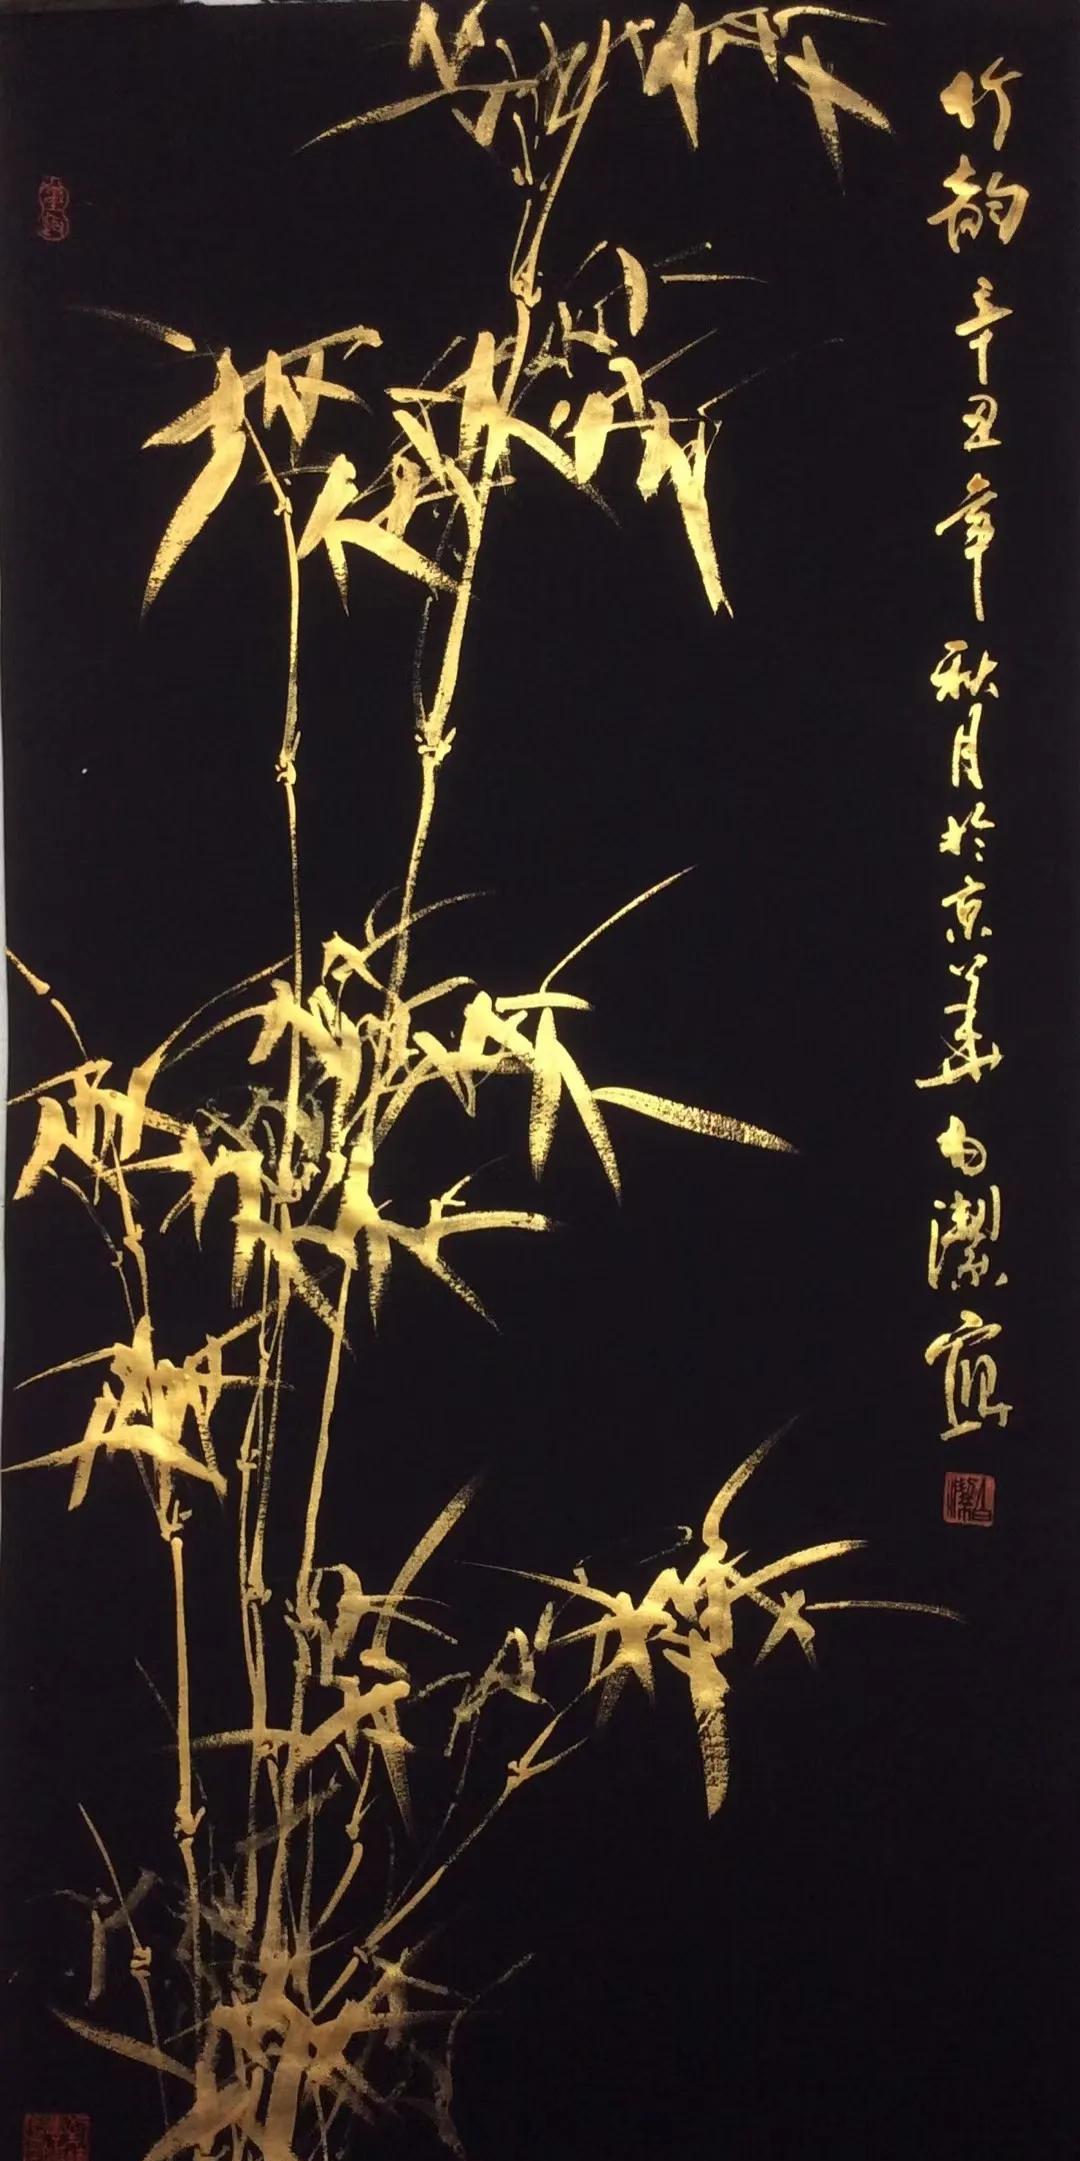 竹韵辛丑年秋月於京華白潔寫
白潔